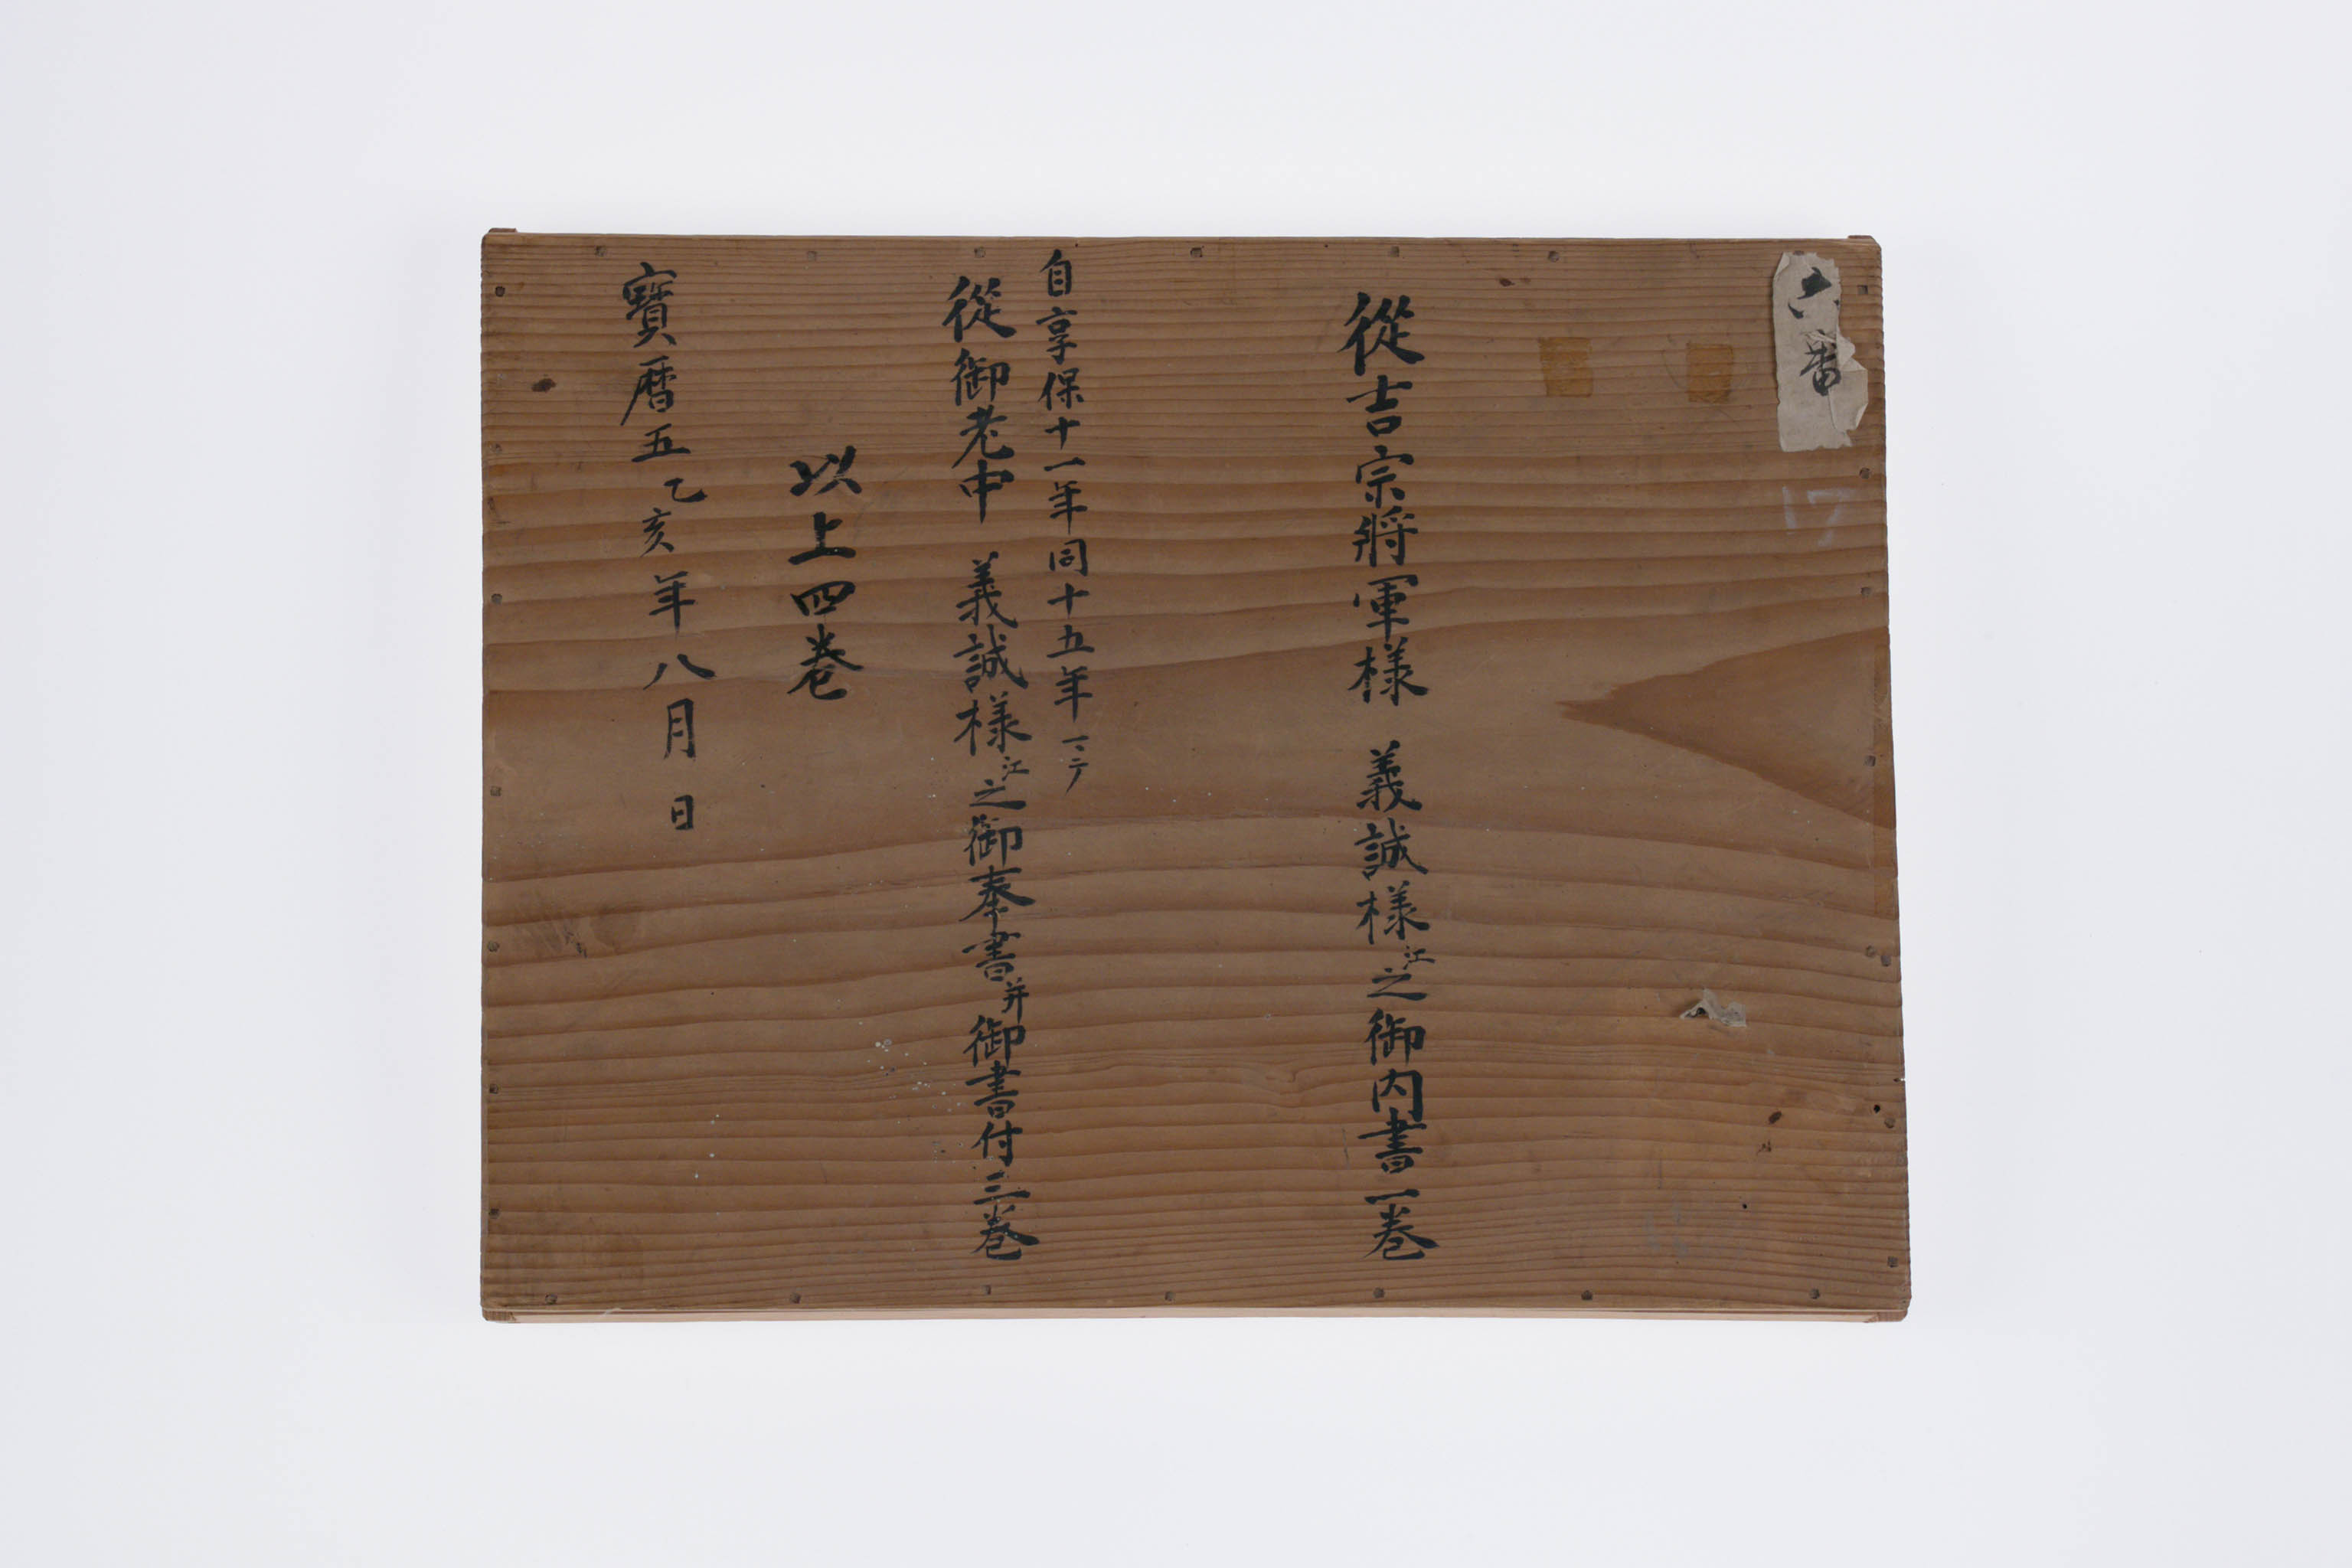 六番
17
從吉宗將軍様 義誠様江之御内書一巻
自享保十一年同十五年ニ
從御老中 義誠様江之御奉書并御書付三巻
以上四巻
寶暦五乙亥年八月 日